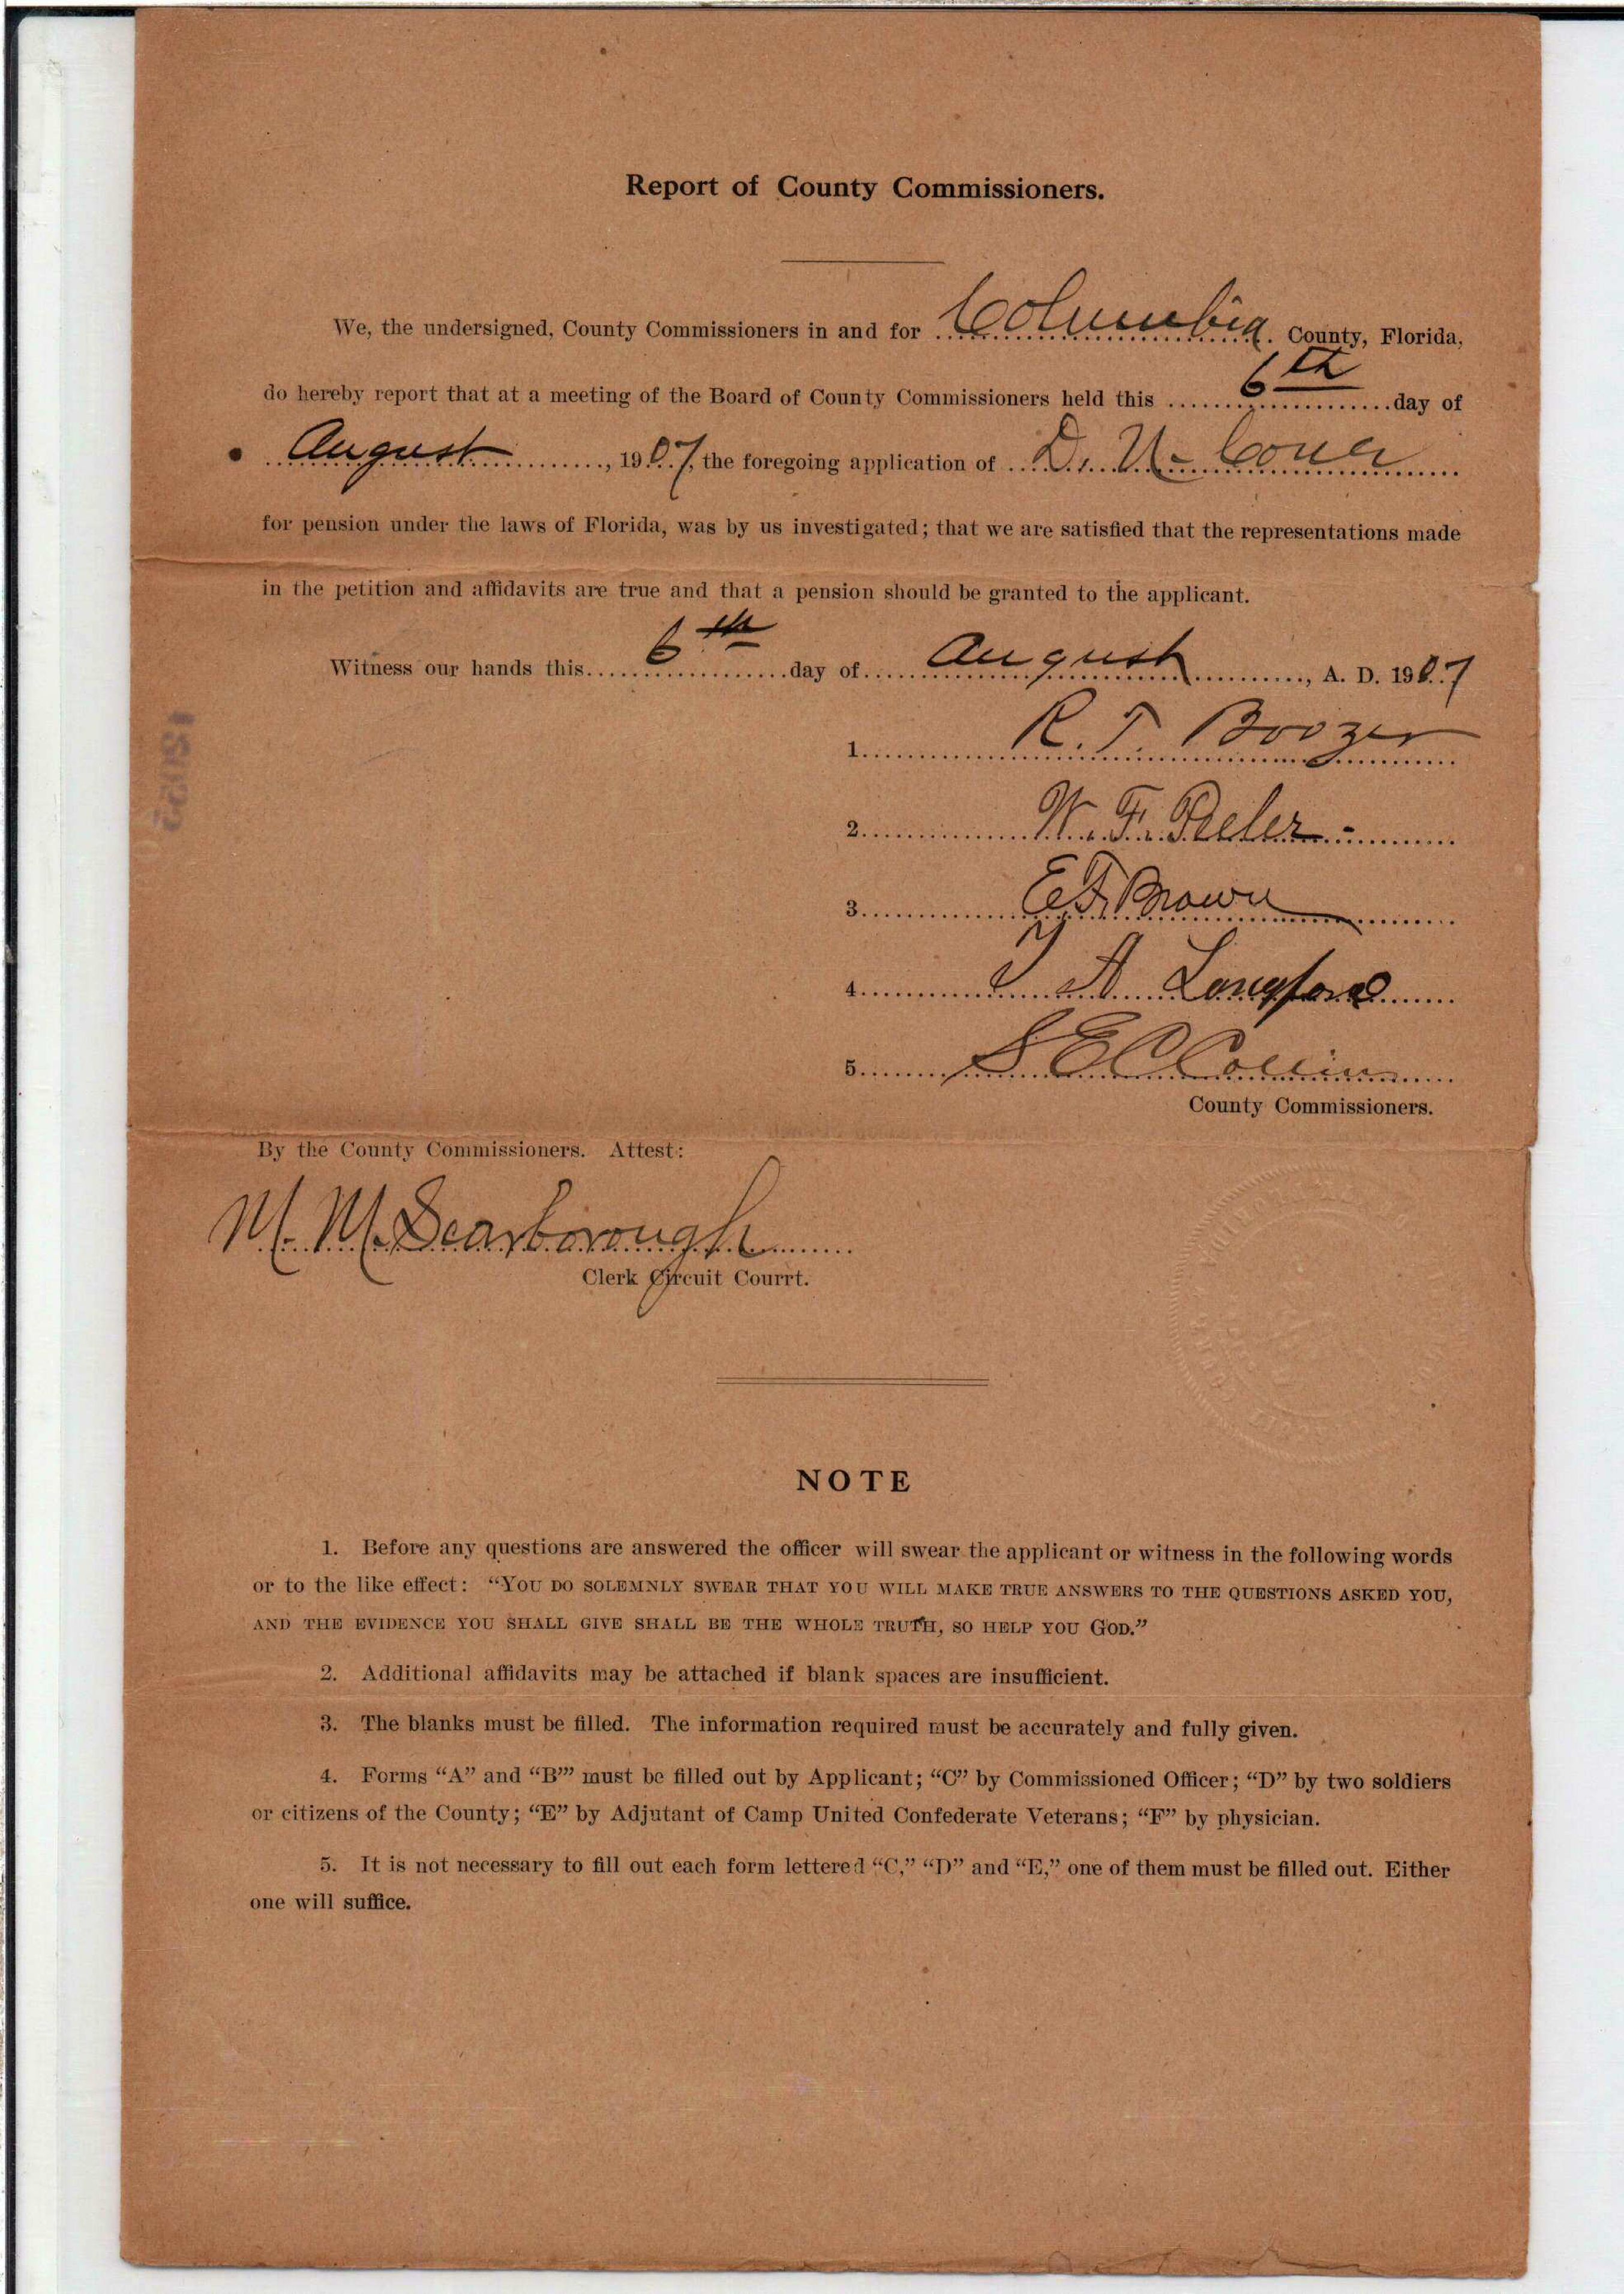 Report of County Commissioners.
We, the undersigned, County Commissioners in and for Columbia County, Florida,
do hereby report that at a meeting of the Board of County Commissioners held this 6th day of
August, 1907, the foregoing application of D. N. Cone
for pension under the laws of Florida, was by us investigated; that we are satisfied that the representations made
in the petition and affidavits are true and that a pension should be granted to the applicant.
Witness our hands this 6th day of August, A. D. 1907
1. R. T. Boozer
2. W. F. Peeler
3. E F Brown
4. A Langford
5. S E C Collin
County Commissioners.
By the County Commissioners. Attest:
M. M. Scarborough
Clerk Circuit Courrt.
NOTE
1. Before any questions are answered the officer will swear the applicant or witness in the following words
or to the like effect: “YOU DO SOLEMNLY SWEAR THAT YOU WILL MAKE TRUE ANSWERS TO THE QUESTIONS ASKED YOU,
AND THE EVIDENCE YOU SHALL GIVE SHALL BE THE WHOLE TRUTH, SO HELP YOU GOD.”
2. Additional affidavits may be attached if blank spaces are insufficient.
3. The blanks must be filled. The information required must be accurately and fully given.
4. Forms “A” and “B”’ must be filled out by Applicant; “C” by Commissioned Officer; “D” by two soldiers
or citizens of the County; “E” by Adjutant of Camp United Confederate Veterans; “F” by physician.
5. It is not necessary to fill out each form lettered “C,” “D” and “E,” one of them must be filled out. Either
one will suffice.